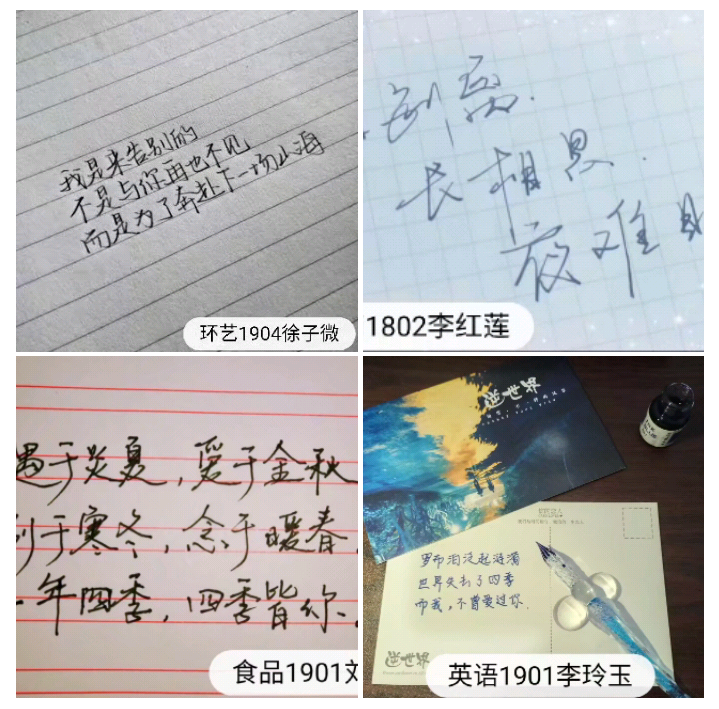 我是来告别的
不是与你再也不见
而是为了奔赴下一场山海
环艺1904徐子微
别离.
长相思.
夜难
1802李红莲
遇于炎夏，爱于金秋
于寒冬，念于暖春
年四季，四季皆你.
食品1901刘
逆世界
罗布泊泛起涟漪
世界失去了四季
而我，不曾爱过你.
逆世界
英语1901李玲玉